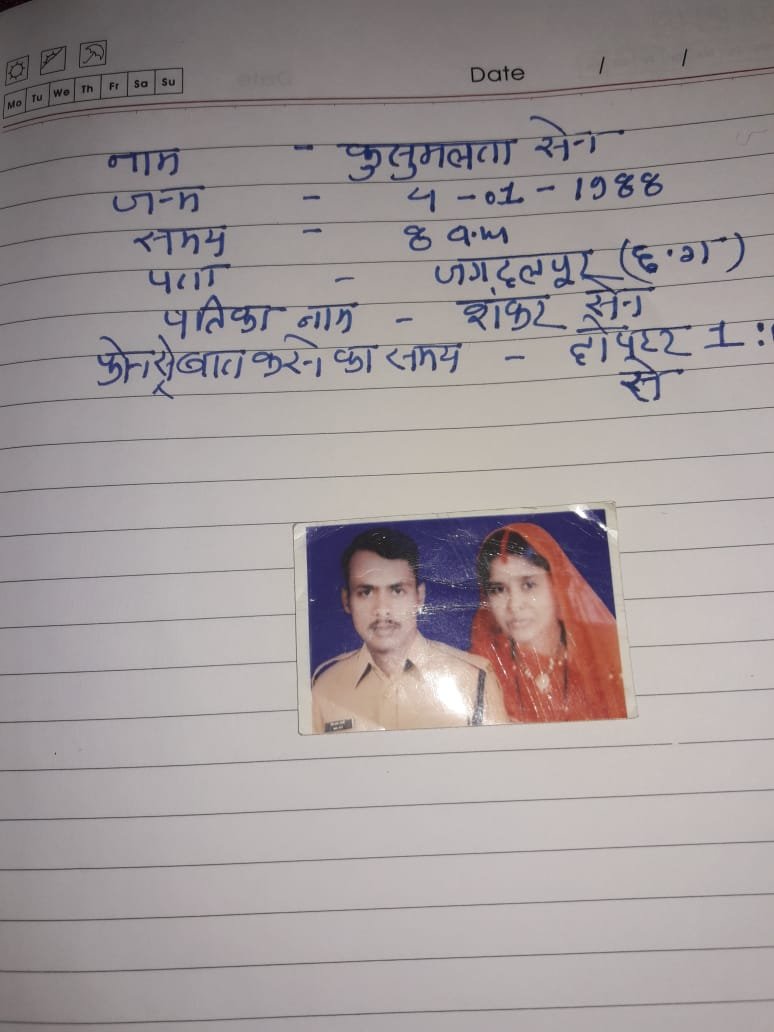 Mo Tu We Th Fr Sa Su
Date / /
नाम - कुसुमलता सेन
जन्म - 4 -01 - 1988
समय - 8 a.m
पता - जगदलपूर (छ.ग)
पति का नाम - शंकर सेन
फोन से बात करने का समय - दोपहर 1:
से